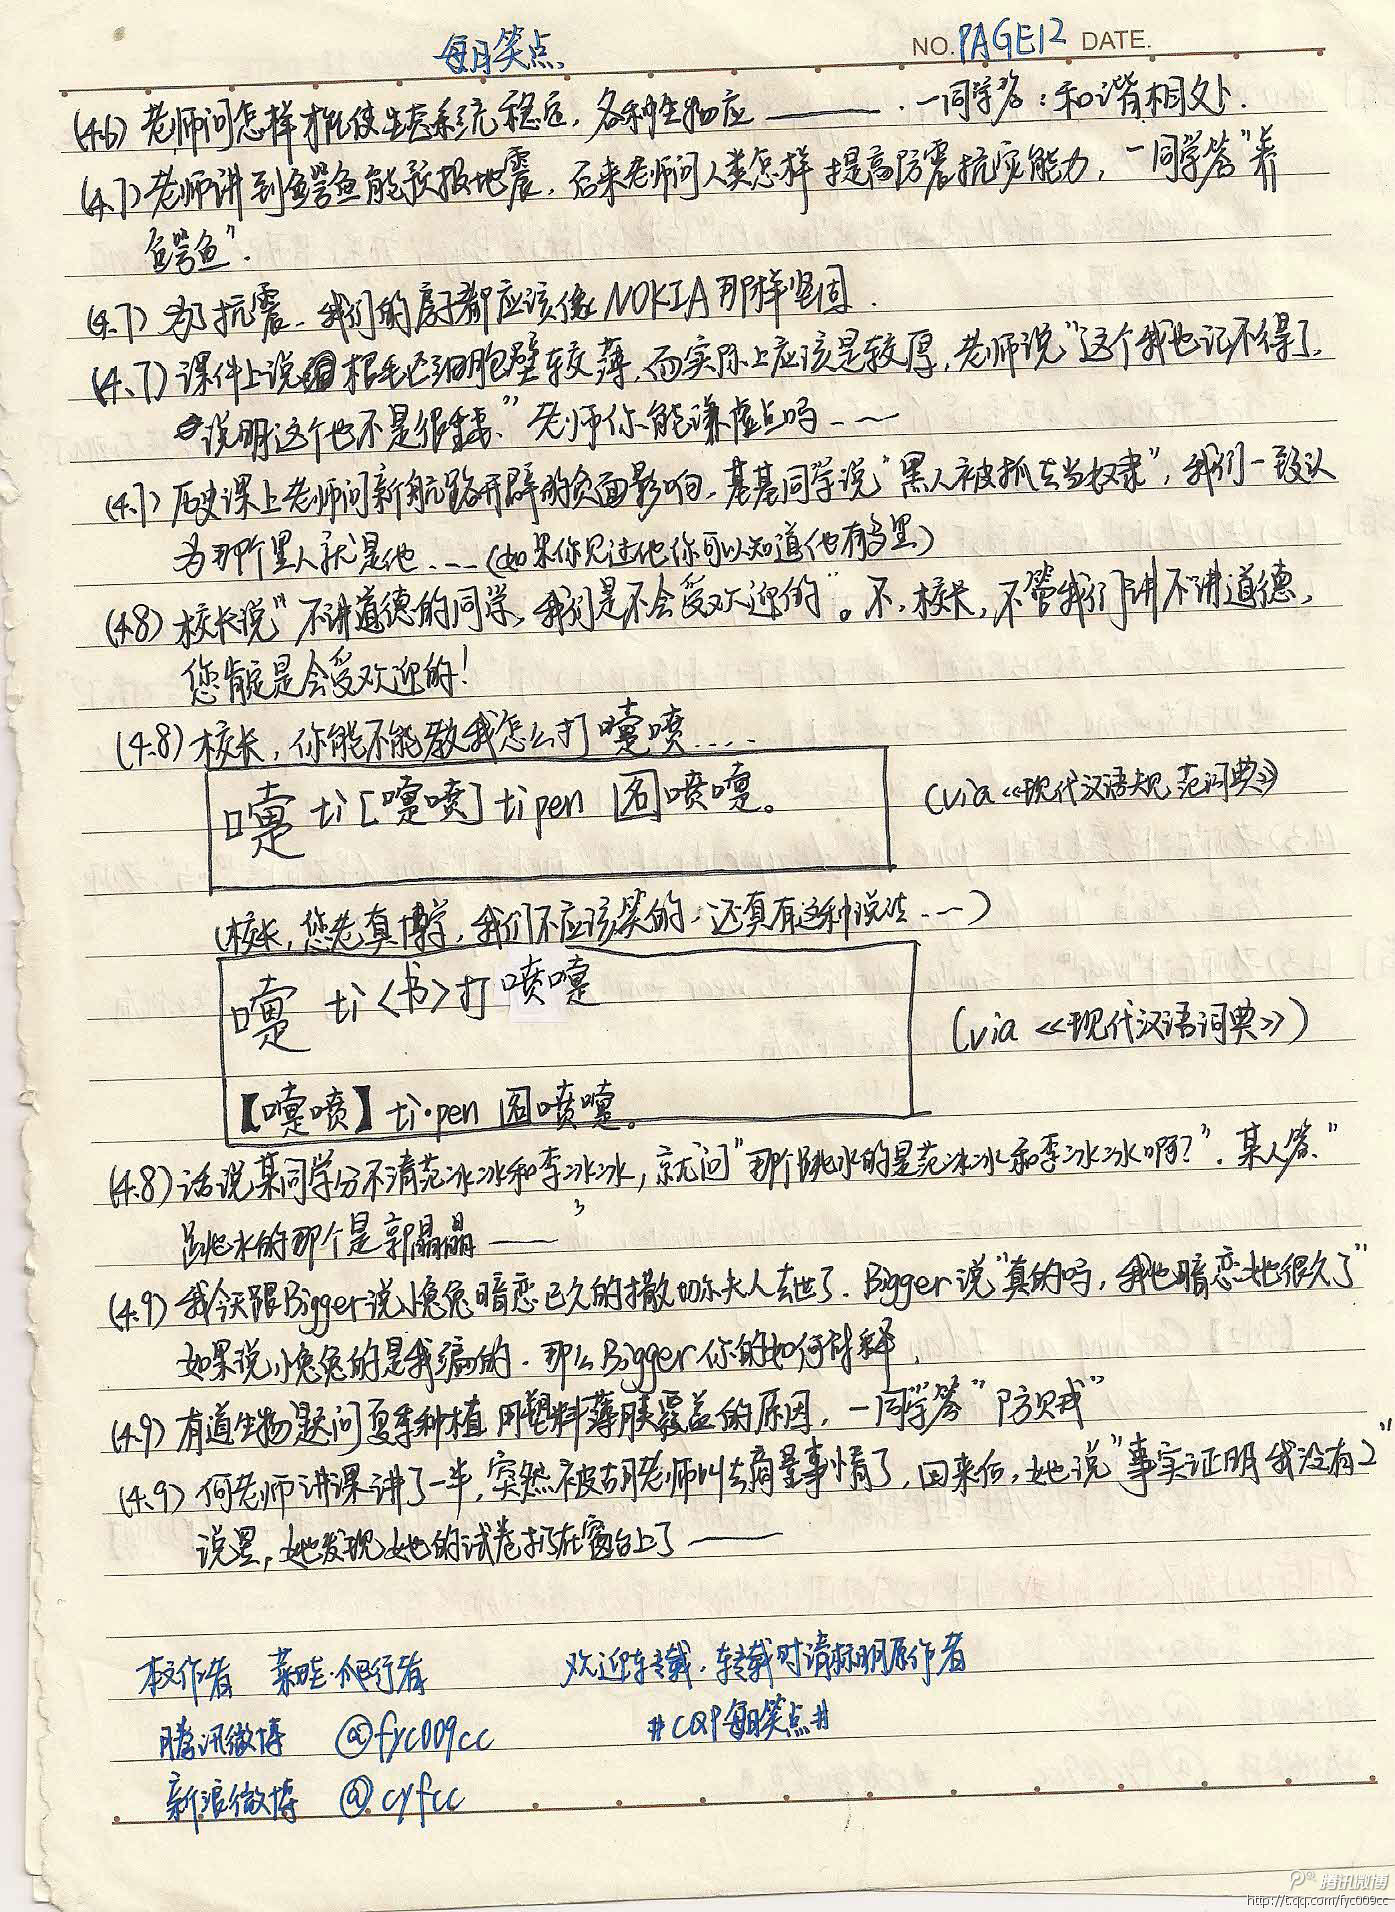 每日笑点
NO. PAGE12 DATE.
(4.6) 老师问怎样才能使生态系统稳定，各种生物应 ——— . 一同学答：和谐相处.
(4.7) 老师讲到鳄鱼能预报地震，后来老师问人类怎样提高防震抗灾能力，一同学答"养
鳄鱼".
(4.7) 为了抗震，我们的房子都应该像NOKIA那样坚固.
(4.7) 课件上说根毛区细胞壁较薄，而实际上应该是较厚，老师说"这个我也记不得了，
说明这个也不是很重要."老师你能谦虚点吗……
(4.7) 历史课上老师问新航路开辟的负面影响，基基同学说"黑人被抓去当奴隶"，我们一致认
为那个黑人就是他……(如果你见过他你可以知道他有多黑)
(4.8) 校长说"不讲道德的同学，我们是不会受欢迎的"。不，校长，不管我们讲不讲道德，
您肯定是会受欢迎的！
(4.8) 校长，你能不能教我怎么打嚏喷....
嚏 tì [嚏喷] tì pen 图喷嚏。
(via《现代汉语规范词典》)
(校长，您老真博学，我们不应该笑的，还真有这种说法……)
嚏 tì〈书〉打喷嚏
(via《现代汉语词典》)
【嚏喷】tì·pen 图喷嚏。
(4.8) 话说某同学分不清范冰冰和李冰冰，就问"那个跳水的是范冰冰和李冰冰啊？". 某人答"
跳水的那个是郭晶晶 ——"
(4.9) 我今天跟Bigger说小兔兔暗恋已久的撒切尔夫人去世了. Bigger说"真的吗，我也暗恋她很久了"
如果说小兔兔的是我编的. 那么Bigger你的如何解释.
(4.9) 有道生物题问夏季种植用塑料薄膜覆盖的原因，一同学答"防贼"
(4.9) 何老师讲课讲了一半，突然被胡老师叫去商量事情了，回来后，她说"事实证明我没有2"
说罢，她发现她的试卷扔在窗台上了 ———
本文作者 菜畦·爬行者 欢迎转载. 转载时请标明原作者
腾讯微博 @fyc009cc #CQP每日笑点#
新浪微博 @cyfcc
腾讯微博
http://t.qq.com/fyc009cc